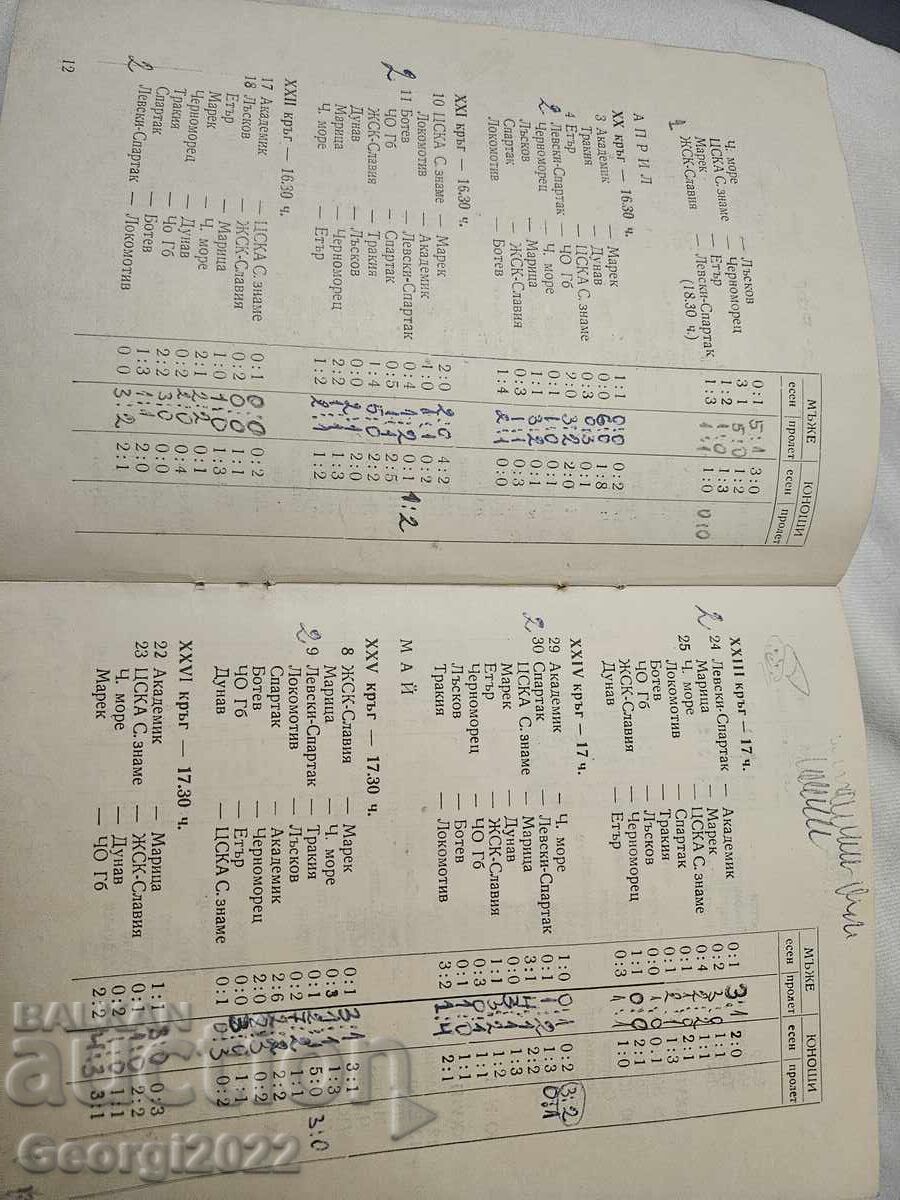 МЪЖЕ ЮНОШИ
есен пролет есен пролет
Ч. море — Лъсков 0:1 5:1 3:0
ЦСКА С. знаме — Черноморец 3 1 5:0 1:2
Марек — Етър 1:2 1:0 1:3
1 ЖСК-Славия — Левски-Спартак 1:3 1:1 1:0 0:0
(18.30 ч.)
АПРИЛ
XX кръг — 16.30 ч.
3 Академик — Марек 1:1 0:0 0:2
Тракия — Дунав 0:0 6:0 1:8
4 Етър — ЦСКА С. знаме 0:3 0:3 0:1
Левски-Спартак — ЧО Гб 2:0 3:2 2:0
2 Черноморец — Ч. море 0:1 1:0 0:1
Лъсков — Марица 1:1 3:2 0:1
Спартак — ЖСК-Славия 0:3 1:1 0:3
Локомотив — Ботев 1:4 2:1 0:0
XXI кръг — 16.30 ч.
10 ЦСКА С. знаме — Марек 2:0 2:0 4:2
Локомотив — Академик 1:0 1:1 0:2
2 11 Ботев — Левски-Спартак 0:4 1:2 0:1 1:2
ЧО Гб — Спартак 0:5 1:1 2:5
ЖСК-Славия — Тракия 1:4 5:0 2:2
Дунав — Лъсков 0:0 2:1 2:0
Марица — Черноморец 2:2 1:1 1:3
Ч. море — Етър 1:2 2:1 1:2
XXII кръг — 16.30 ч.
17 Академик — ЦСКА С. знаме 0:1 0:0 0:2
18 Лъсков — ЖСК-Славия 0:2 0:0 1:1
Етър — Марица 1:0 1:0 1:3
Марек — Ч. море 2:1 2:2 0:1
Черноморец — Дунав 0:2 2:0 0:4
Тракия — Чо Гб 2:2 3:0 0:0
Спартак — Ботев 1:3 1:1 2:0
2 Левски-Спартак — Локомотив 0 0 3:2 2:1
12
МЪЖЕ ЮНОШИ
есен пролет есен пролет
XXIII кръг — 17 ч.
2 24 Левски-Спартак — Академик 0:1 3:1 2:0
Марица — Марек 0:2 1:1
25 Ч. море — ЦСКА С. знаме 0:4 1:1
Локомотив — Спартак 0:1 2:1
Ботев — Тракия 0:1 1:3
ЧО Гб — Лъсков 0:0 0:1
ЖСК-Славия — Черноморец 1:1 0:0 2:1
Дунав — Етър 0:3 1:0
XXIV кръг — 17 ч.
29 Академик — Ч. море 1:0 0:1 0:2 3:2
2 30 Спартак — Левски-Спартак 0:1 1:2 1:3 0:1
ЦСКА С. знаме — Марица 3:1 1:2
Марек — Дунав 0:0 1:3
Етър — ЖСК-Славия 1:1 1:2
Черноморец — ЧО Гб 0:3 0:1 1:1
Лъсков — Ботев 0:1 1:0 1:1
Тракия — Локомотив 3:2 1:4 2:1
МАЙ
XXV кръг — 17.30 ч.
8 ЖСК-Славия — Марек 0:1 3:1 3:1
Марица — Ч. море 0:3 1:3
2 9 Левски-Спартак — Тракия 0:1 5:0 3:0
Локомотив — Лъсков 0:2 1:1
Спартак — Академик 2:6 2:2 2:2
Ботев — Черноморец 2:0 2:3 0:2
ЧО Гб — Етър 0:0 3:0 1:1
Дунав — ЦСКА С. знаме 0:1 0:3 0:2
XXVI кръг — 17.30 ч.
22 Академик — Марица 1:1 3:0 0:3
23 ЦСКА С. знаме — ЖСК-Славия 0:1 2:2
Ч. море — Дунав 0:2 1:1
Марек — ЧО Гб 2:2 4:3 3:1
BALKAN
auction
Georgi2022